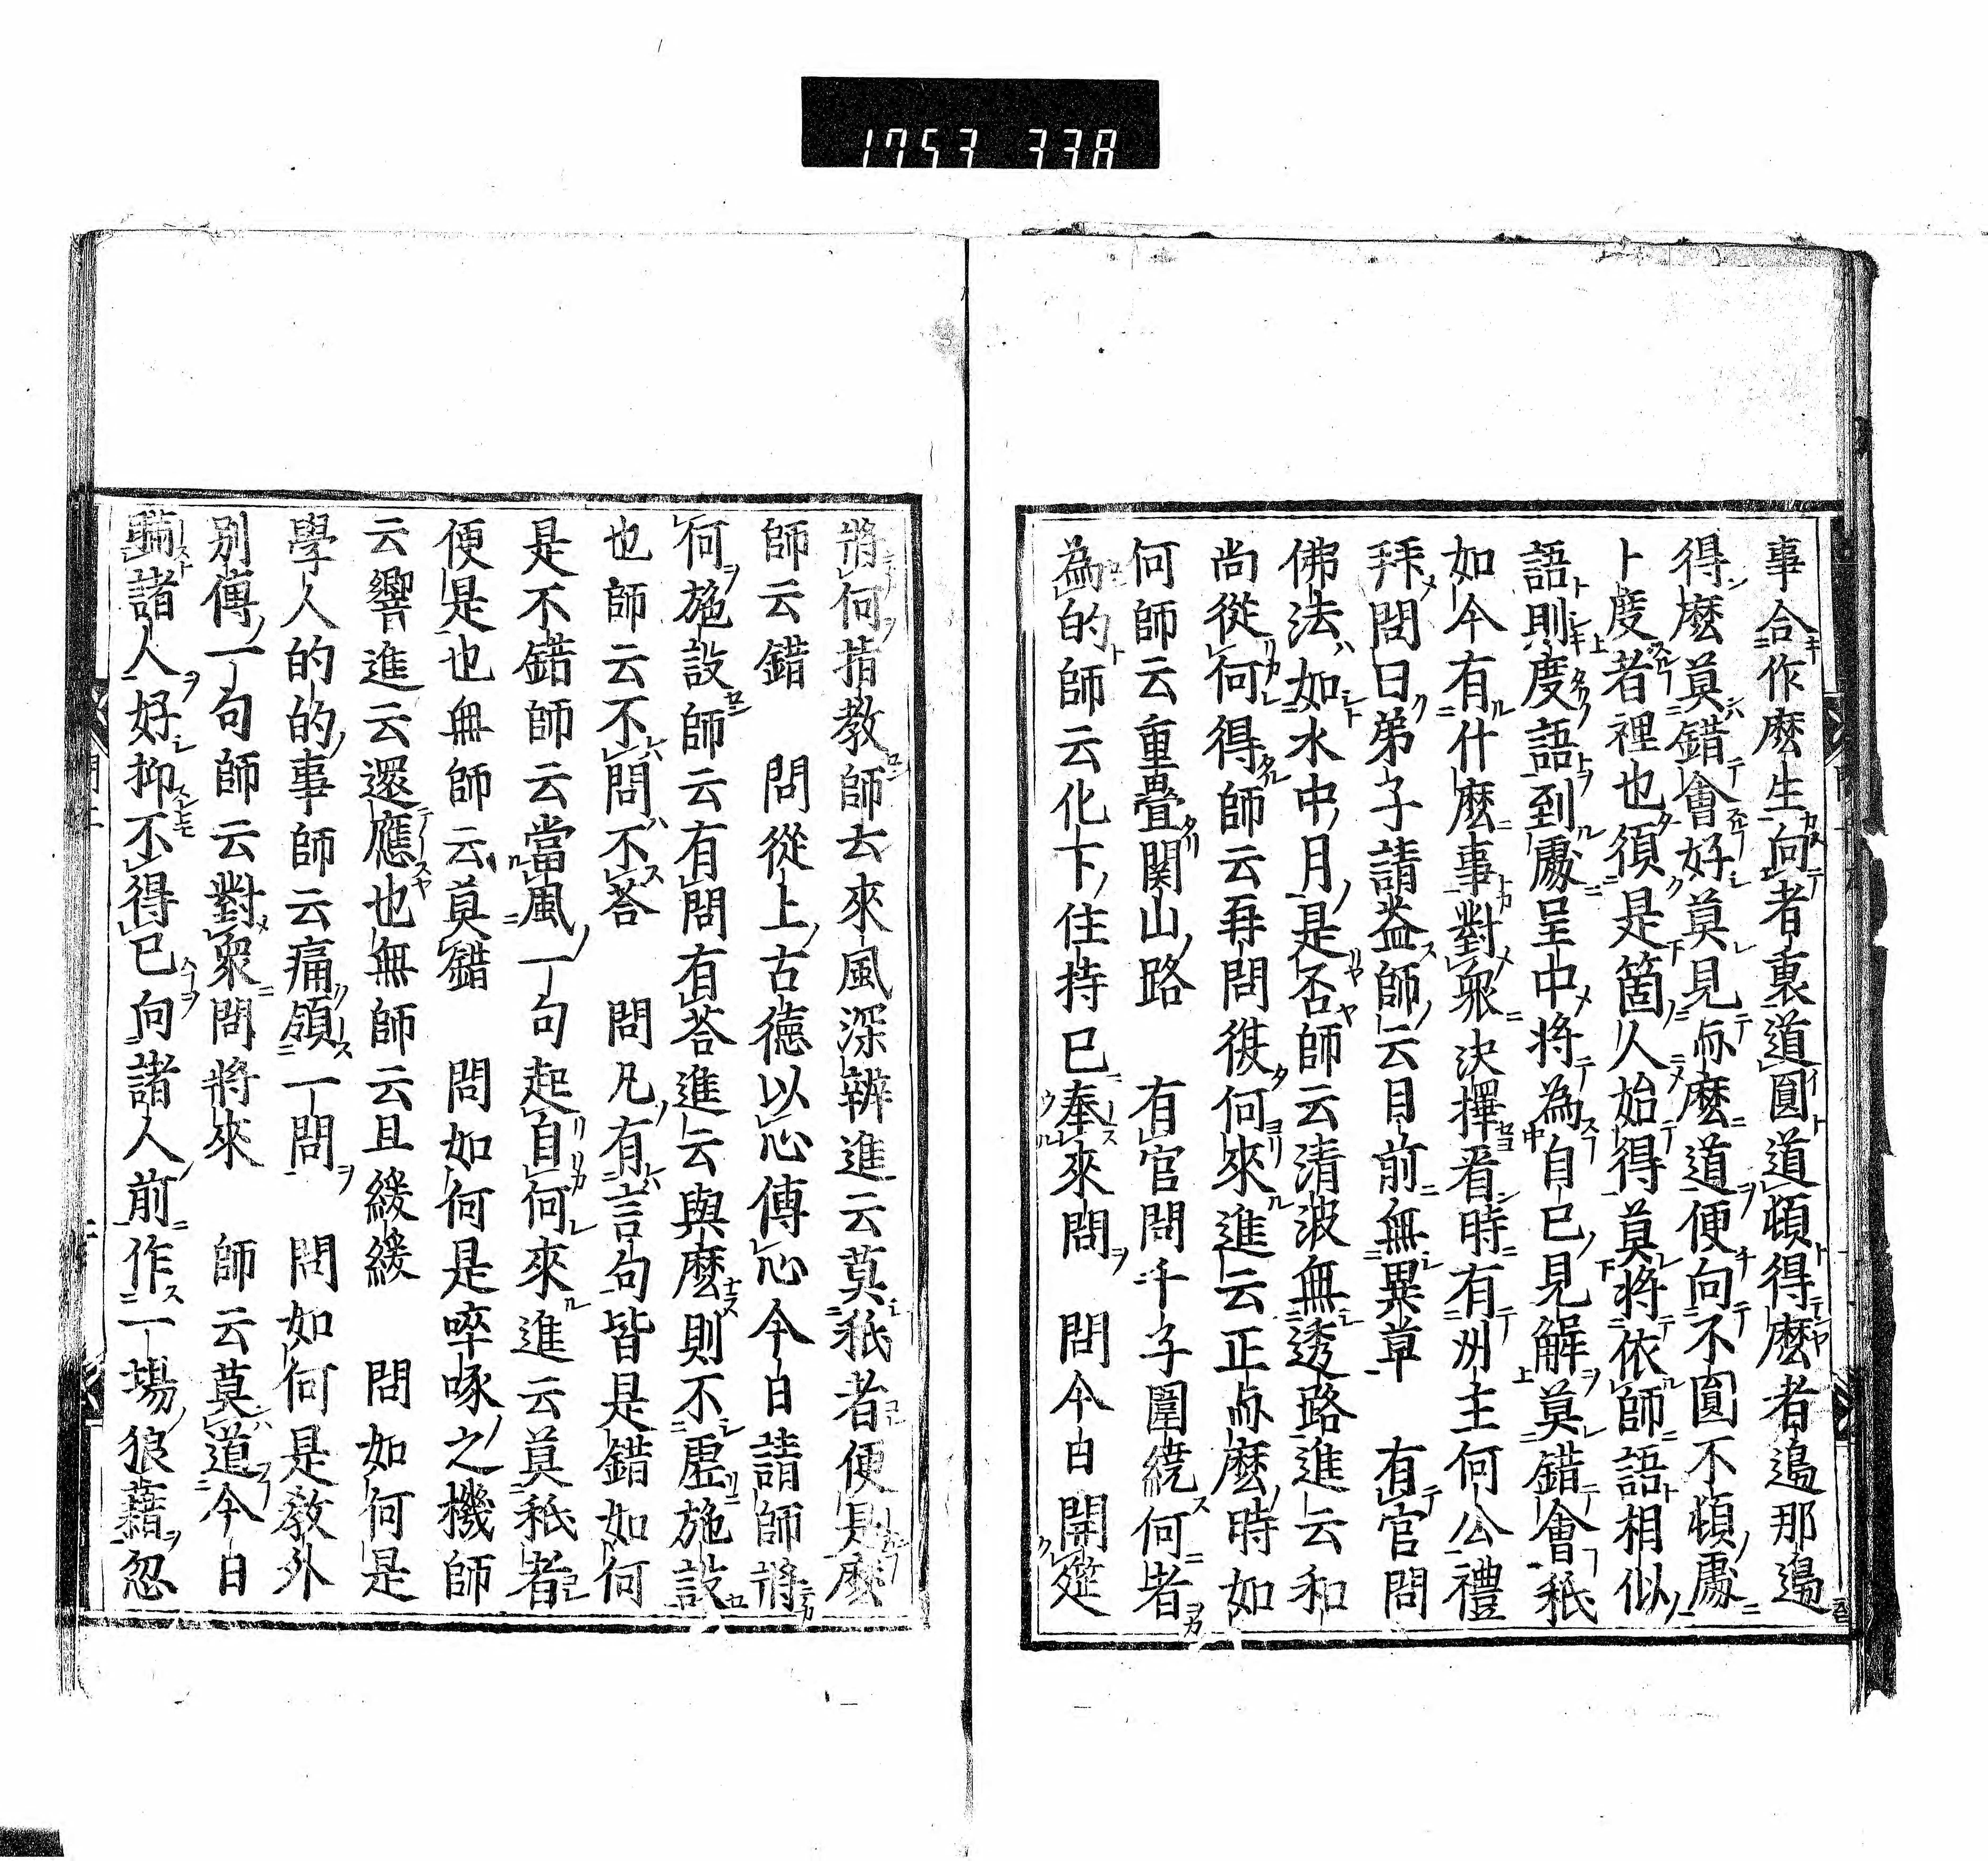 1753 338
事合作麽生向者裏道圓道頓得麽者邉那邉
得麽莫錯會好莫見与麽道便向不圓不頓處
卜度者裡也須是箇人始得莫將依師語相似
語則度語到處呈中將為自己見解莫錯會秖
如今有什麽事對衆決擇看時有洲主何公禮
拜問曰弟子請益師云目前無異草　有官問
佛法如水中月是否師云清波無透路進云和
尚從何得師云再問復何來進云正与麽時如
何師云重疊関山路　有官問千子圍繞何者
為的師云化下住持已奉來問　問今日開筵
將何指教師云來風深辨進云莫秖者便是麽
師云錯　問從上古德以心傳心今日請師將
何施設師云有問有荅進云與麽則不虚施設
也師云不問不荅　問凡有言句皆是錯如何
是不錯師云當風一句起自何來進云莫秖者
便是也無師云莫錯　問如何是啐啄之機師
云響進云還應也無師云且緩緩　問如何是
學人的的事師云痛領一問　問如何是教外
別傳一句師云對衆問將來　師云莫道今日
瞞諸人好抑不得已向諸人前作一場狼藉忽